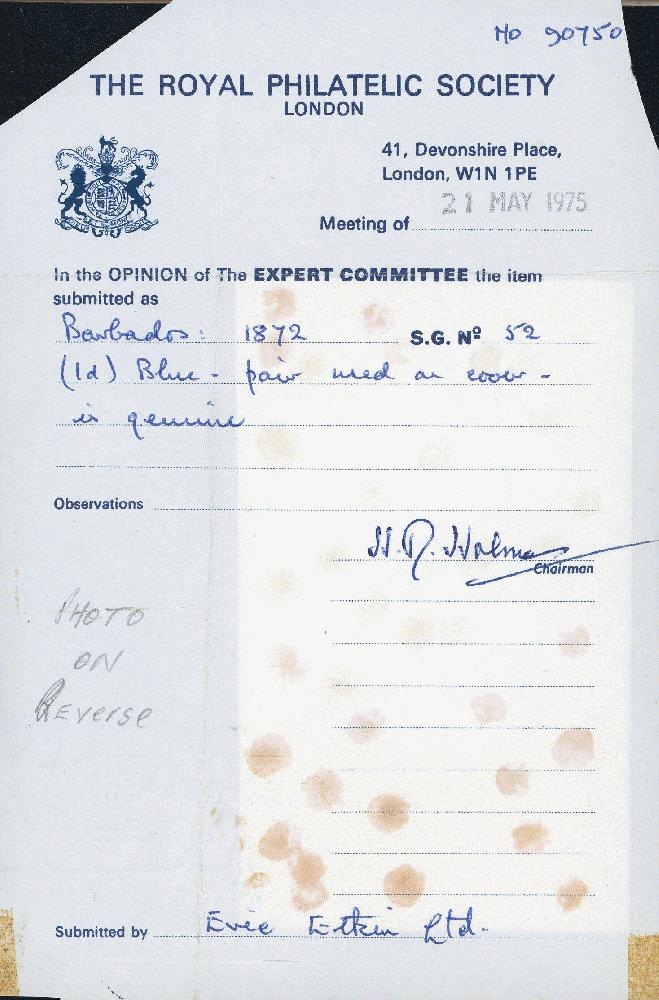 No 90750
THE ROYAL PHILATELIC SOCIETY
LONDON
41, Devonshire Place,
London, W1N 1PE
21 MAY 1975
Meeting of
In the OPINION of The EXPERT COMMITTEE the item
submitted as
Barbados: 1872 S.G. Nº 52
(1d) Blue - pair used on cover -
is genuine
Observations
Chairman
PHOTO
ON
Reverse
Submitted by Eric Etkin Ltd.